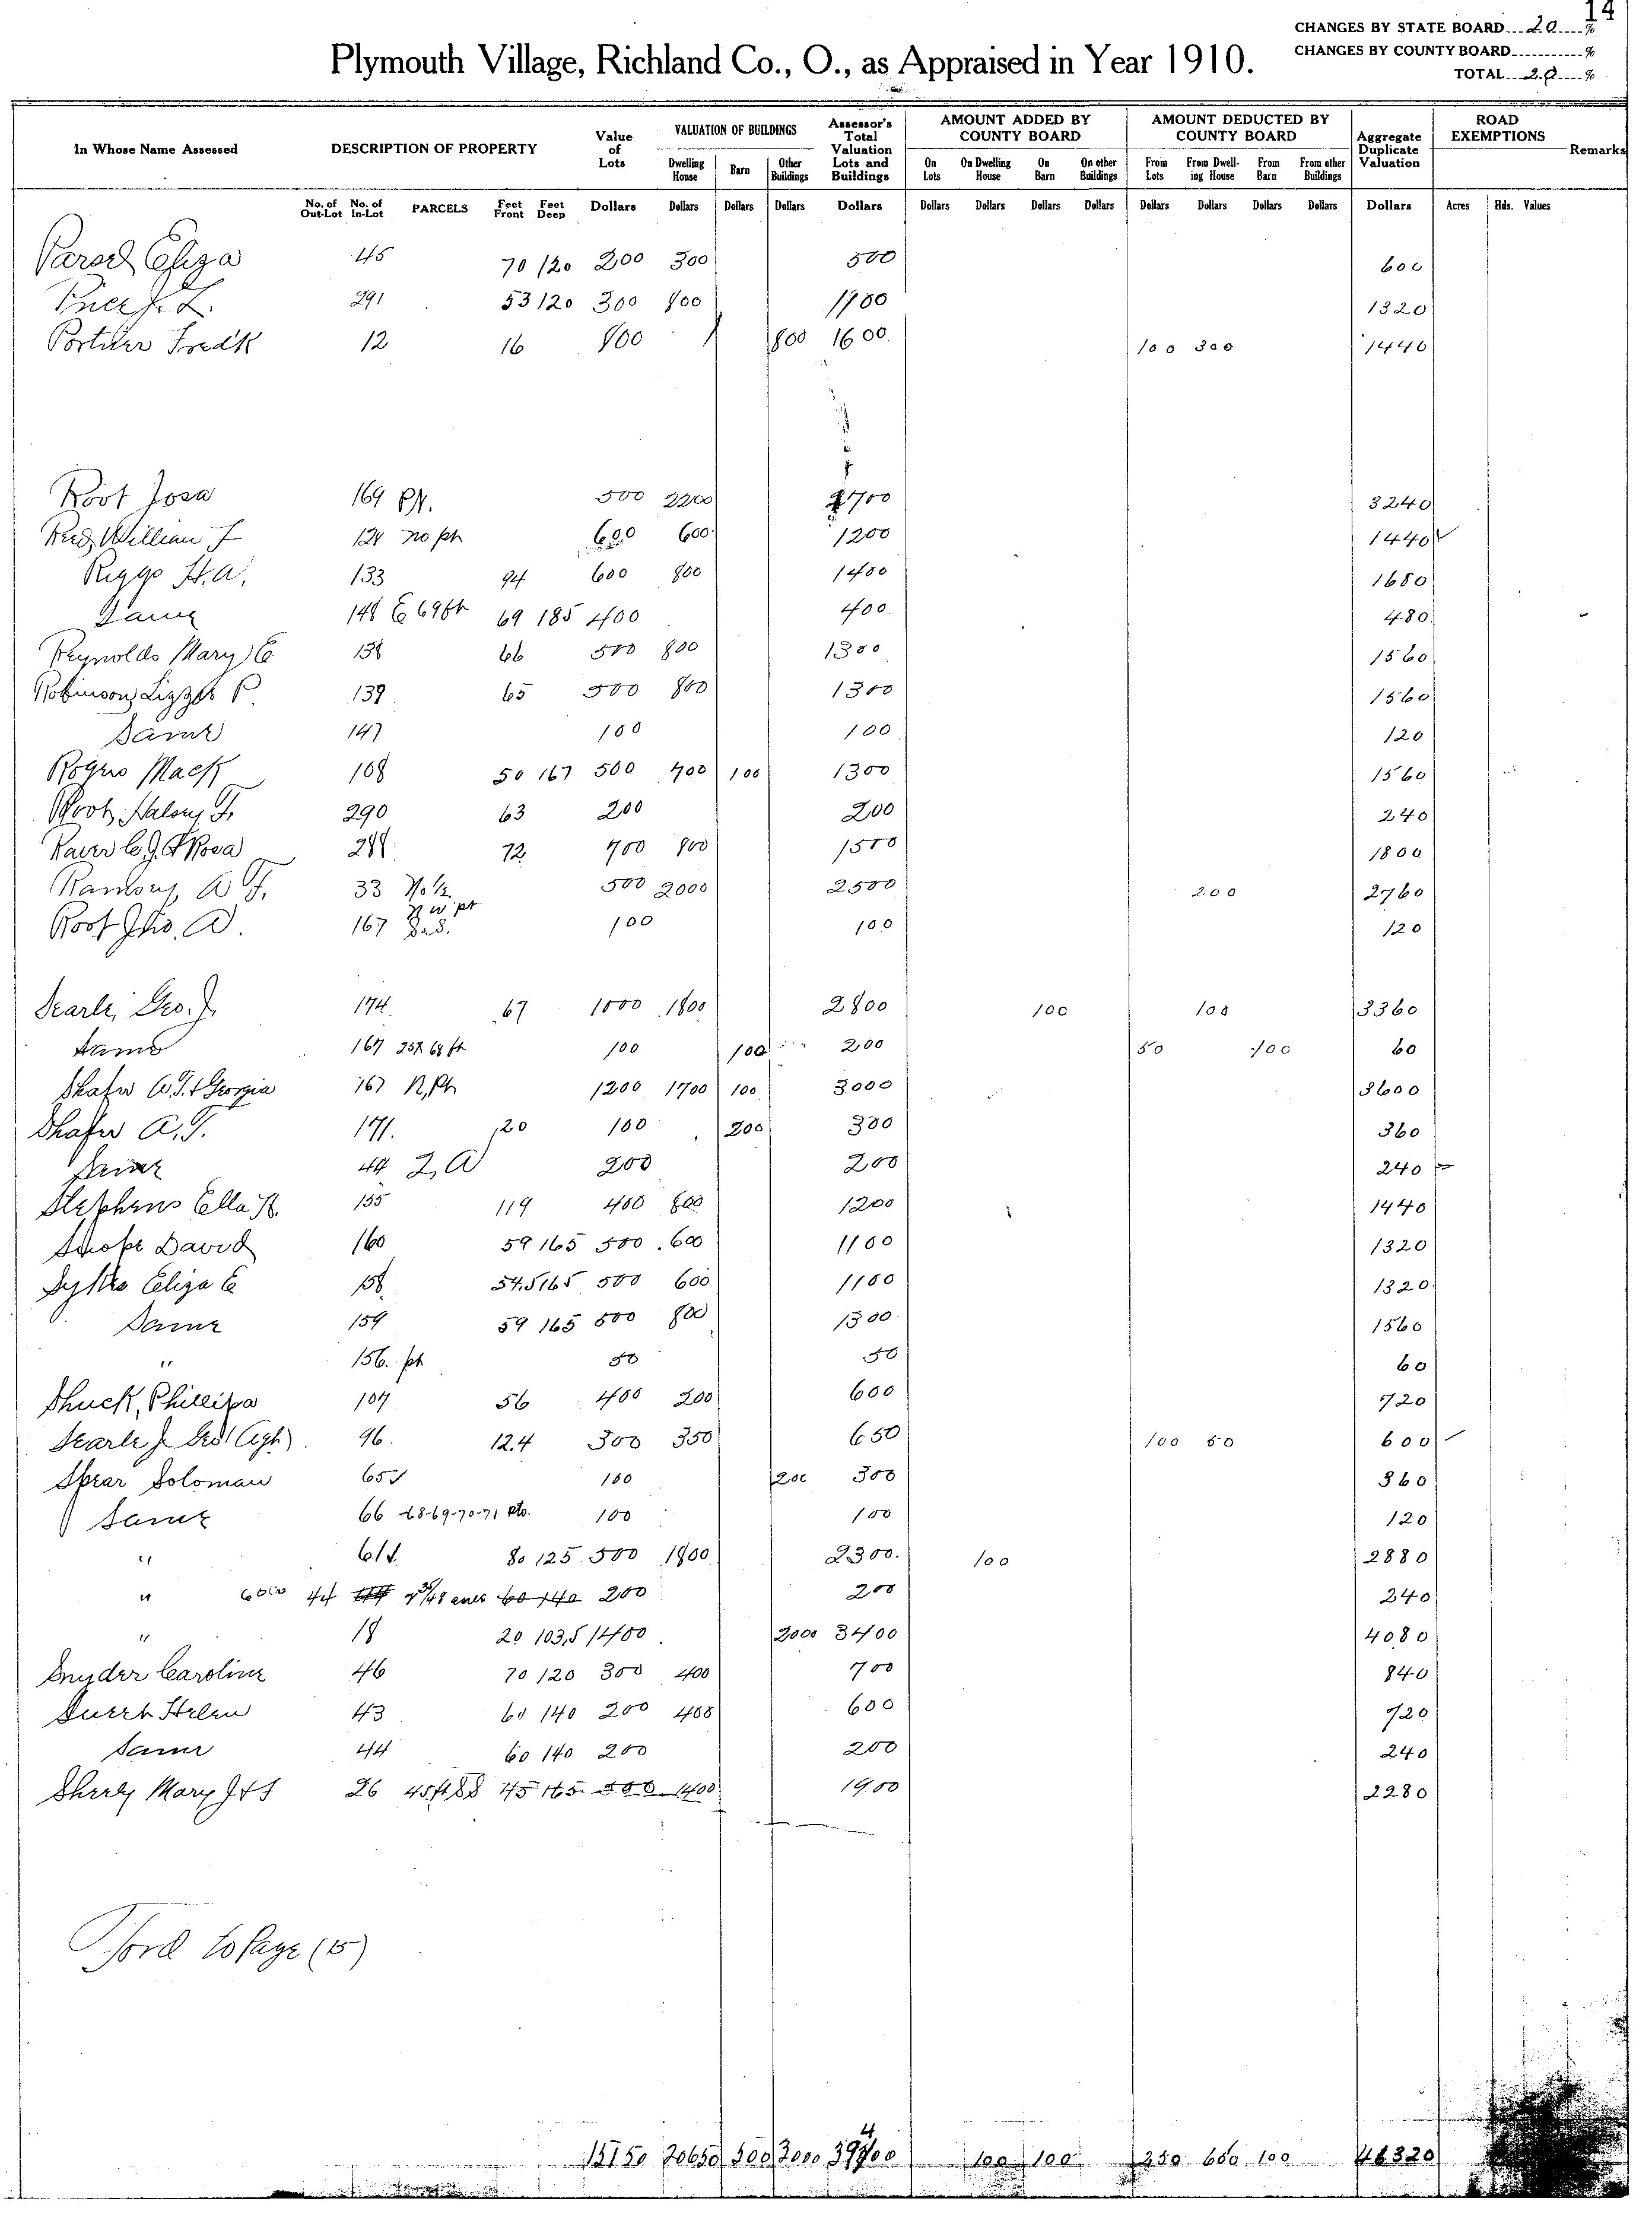 14
CHANGES BY STATE BOARD 20 %
CHANGES BY COUNTY BOARD %
TOTAL 20 %
Plymouth Village, Richland Co., O., as Appraised in Year 1910.
In Whose Name Assessed DESCRIPTION OF PROPERTY Value of Lots VALUATION OF BUILDINGS Assessor's Total Valuation Lots and Buildings AMOUNT ADDED BY COUNTY BOARD AMOUNT DEDUCTED BY COUNTY BOARD Aggregate Duplicate Valuation ROAD EXEMPTIONS Remarks
Dwelling House Barn Other Buildings On Lots On Dwelling House On Barn On other Buildings From Lots From Dwelling House From Barn From other Buildings
No. of Out-Lot No. of In-Lot PARCELS Feet Front Feet Deep Dollars Dollars Dollars Dollars Dollars Dollars Dollars Dollars Dollars Dollars Dollars Dollars Dollars Dollars Acres Hds. Values
Eliza 45 70 120 200 300 500 600
291 53 120 300 800 1100 1320
Fredk 12 16 800 800 1600 100 300 1440
Root Josa 169 Pt. 500 2200 2700 3240
William F 128 no pt 600 600 1200 1440
Riggs H.A. 133 94 600 800 1400 1680
Same 148 E 69 ft 69 185 400 400 480
Reynolds Mary E 138 66 500 800 1300 1560
Robinson Lizzie P. 139 65 500 800 1300 1560
Same 147 100 100 120
Rogers Mack 108 50 167 500 700 100 1300 1560
Root, F. 290 63 200 200 240
& Rosa 288 72 700 800 1500 1800
A F. 33 No ½ 500 2000 2500 200 2760
Root Jno. A. 167 N W pt 100 100 120
Searle, Geo. J. 174 67 1000 1800 2800 100 100 3360
Same 167 25X 68 ft 100 100 200 50 100 60
Shafer A.T. & Georgia 167 N. Pt 1200 1700 100 3000 3600
Shafer A.T. 171. 20 100 200 300 360
Same 44 2, A 200 200 240
Stephens Ella 155 119 400 800 1200 1440
David 160 59 165 500 600 1100 1320
Eliza E 158 54.5 165 500 600 1100 1320
Same 159 59 165 500 800 1300 1560
" 156. pt 50 50 60
Shuck, Phillipa 107 56 400 200 600 720
Searle J Geo (Agt) 96. 12.4 300 350 650 100 50 600
Spear Soloman 65 100 200 300 360
Same 66 -68-69-70-71 pts. 100 100 120
" 61 80 125 500 1800 2300 100 2880
" 44 60 140 200 200 240
" 18 20 103.5 1400 2000 3400 4080
Snyder Caroline 46 70 120 300 400 700 840
Helen 43 60 140 200 400 600 720
Same 44 60 140 200 200 240
Mary J & S 26 45 165 500 1400 1900 2280
Ford to Page (15)
20650 3000 100 100 250 650 100